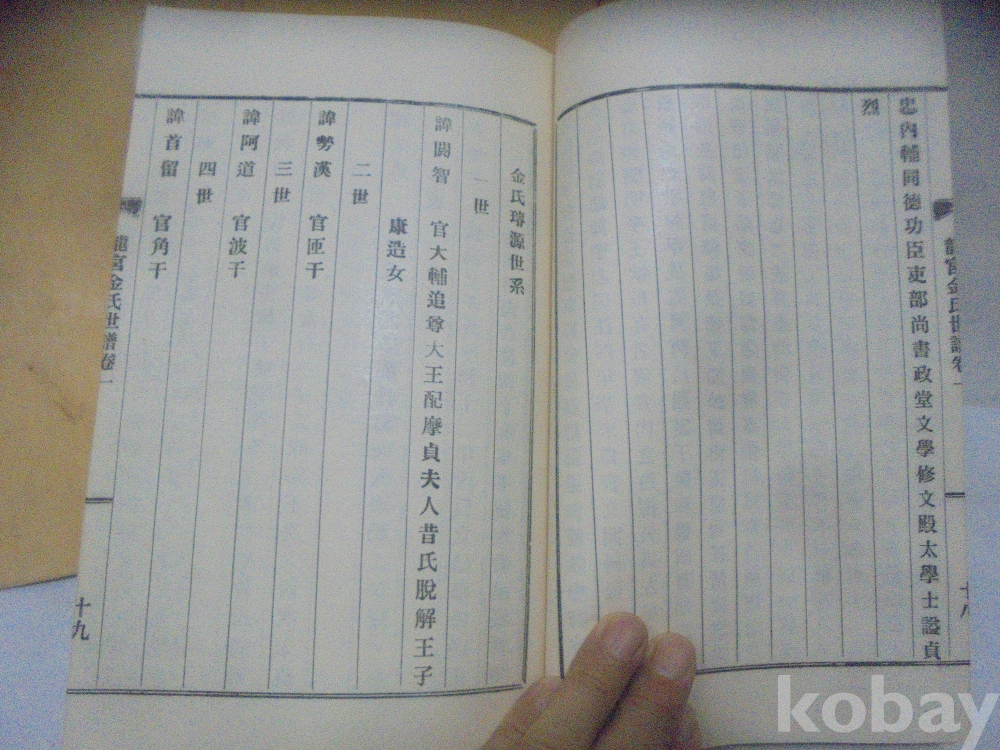 忠內輔同德功臣吏部尚書政堂文學修文殿太學士謚貞
烈
龍宮金氏世譜卷一
十八
金氏璿源世系
一世
諱閼智 官大輔追尊大王配摩貞夫人昔氏脫解王子
康造女
二世
諱勢漢 官匝干
三世
諱阿道 官波干
四世
諱首留 官角干
龍宮金氏世譜卷一
十九
kobay